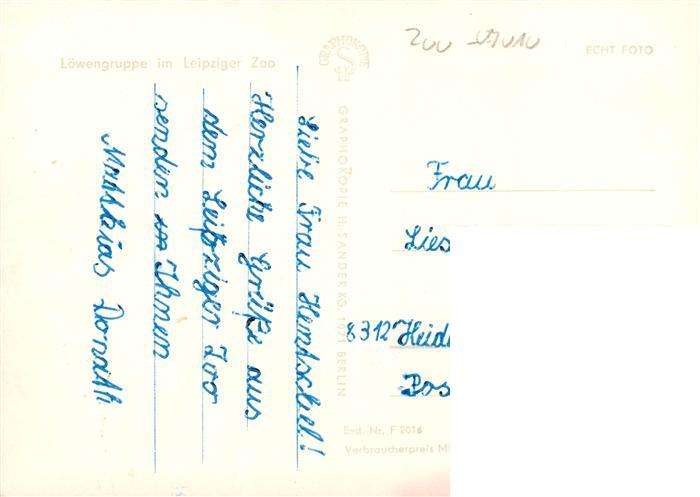 Löwengruppe im Leipziger Zoo
Liebe Frau Hentschel!
Herzliche Grüße aus
dem Leipziger Zoo
senden wir Ihnen
Matthias Donath
GRAPHOKOPIE
GRAPHOKOPIE H. SANDER KG, 1071 BERLIN
ECHT FOTO
Frau
Lies
8312 Heid
Pos
Best. Nr. F 2016
Verbraucherpreis M